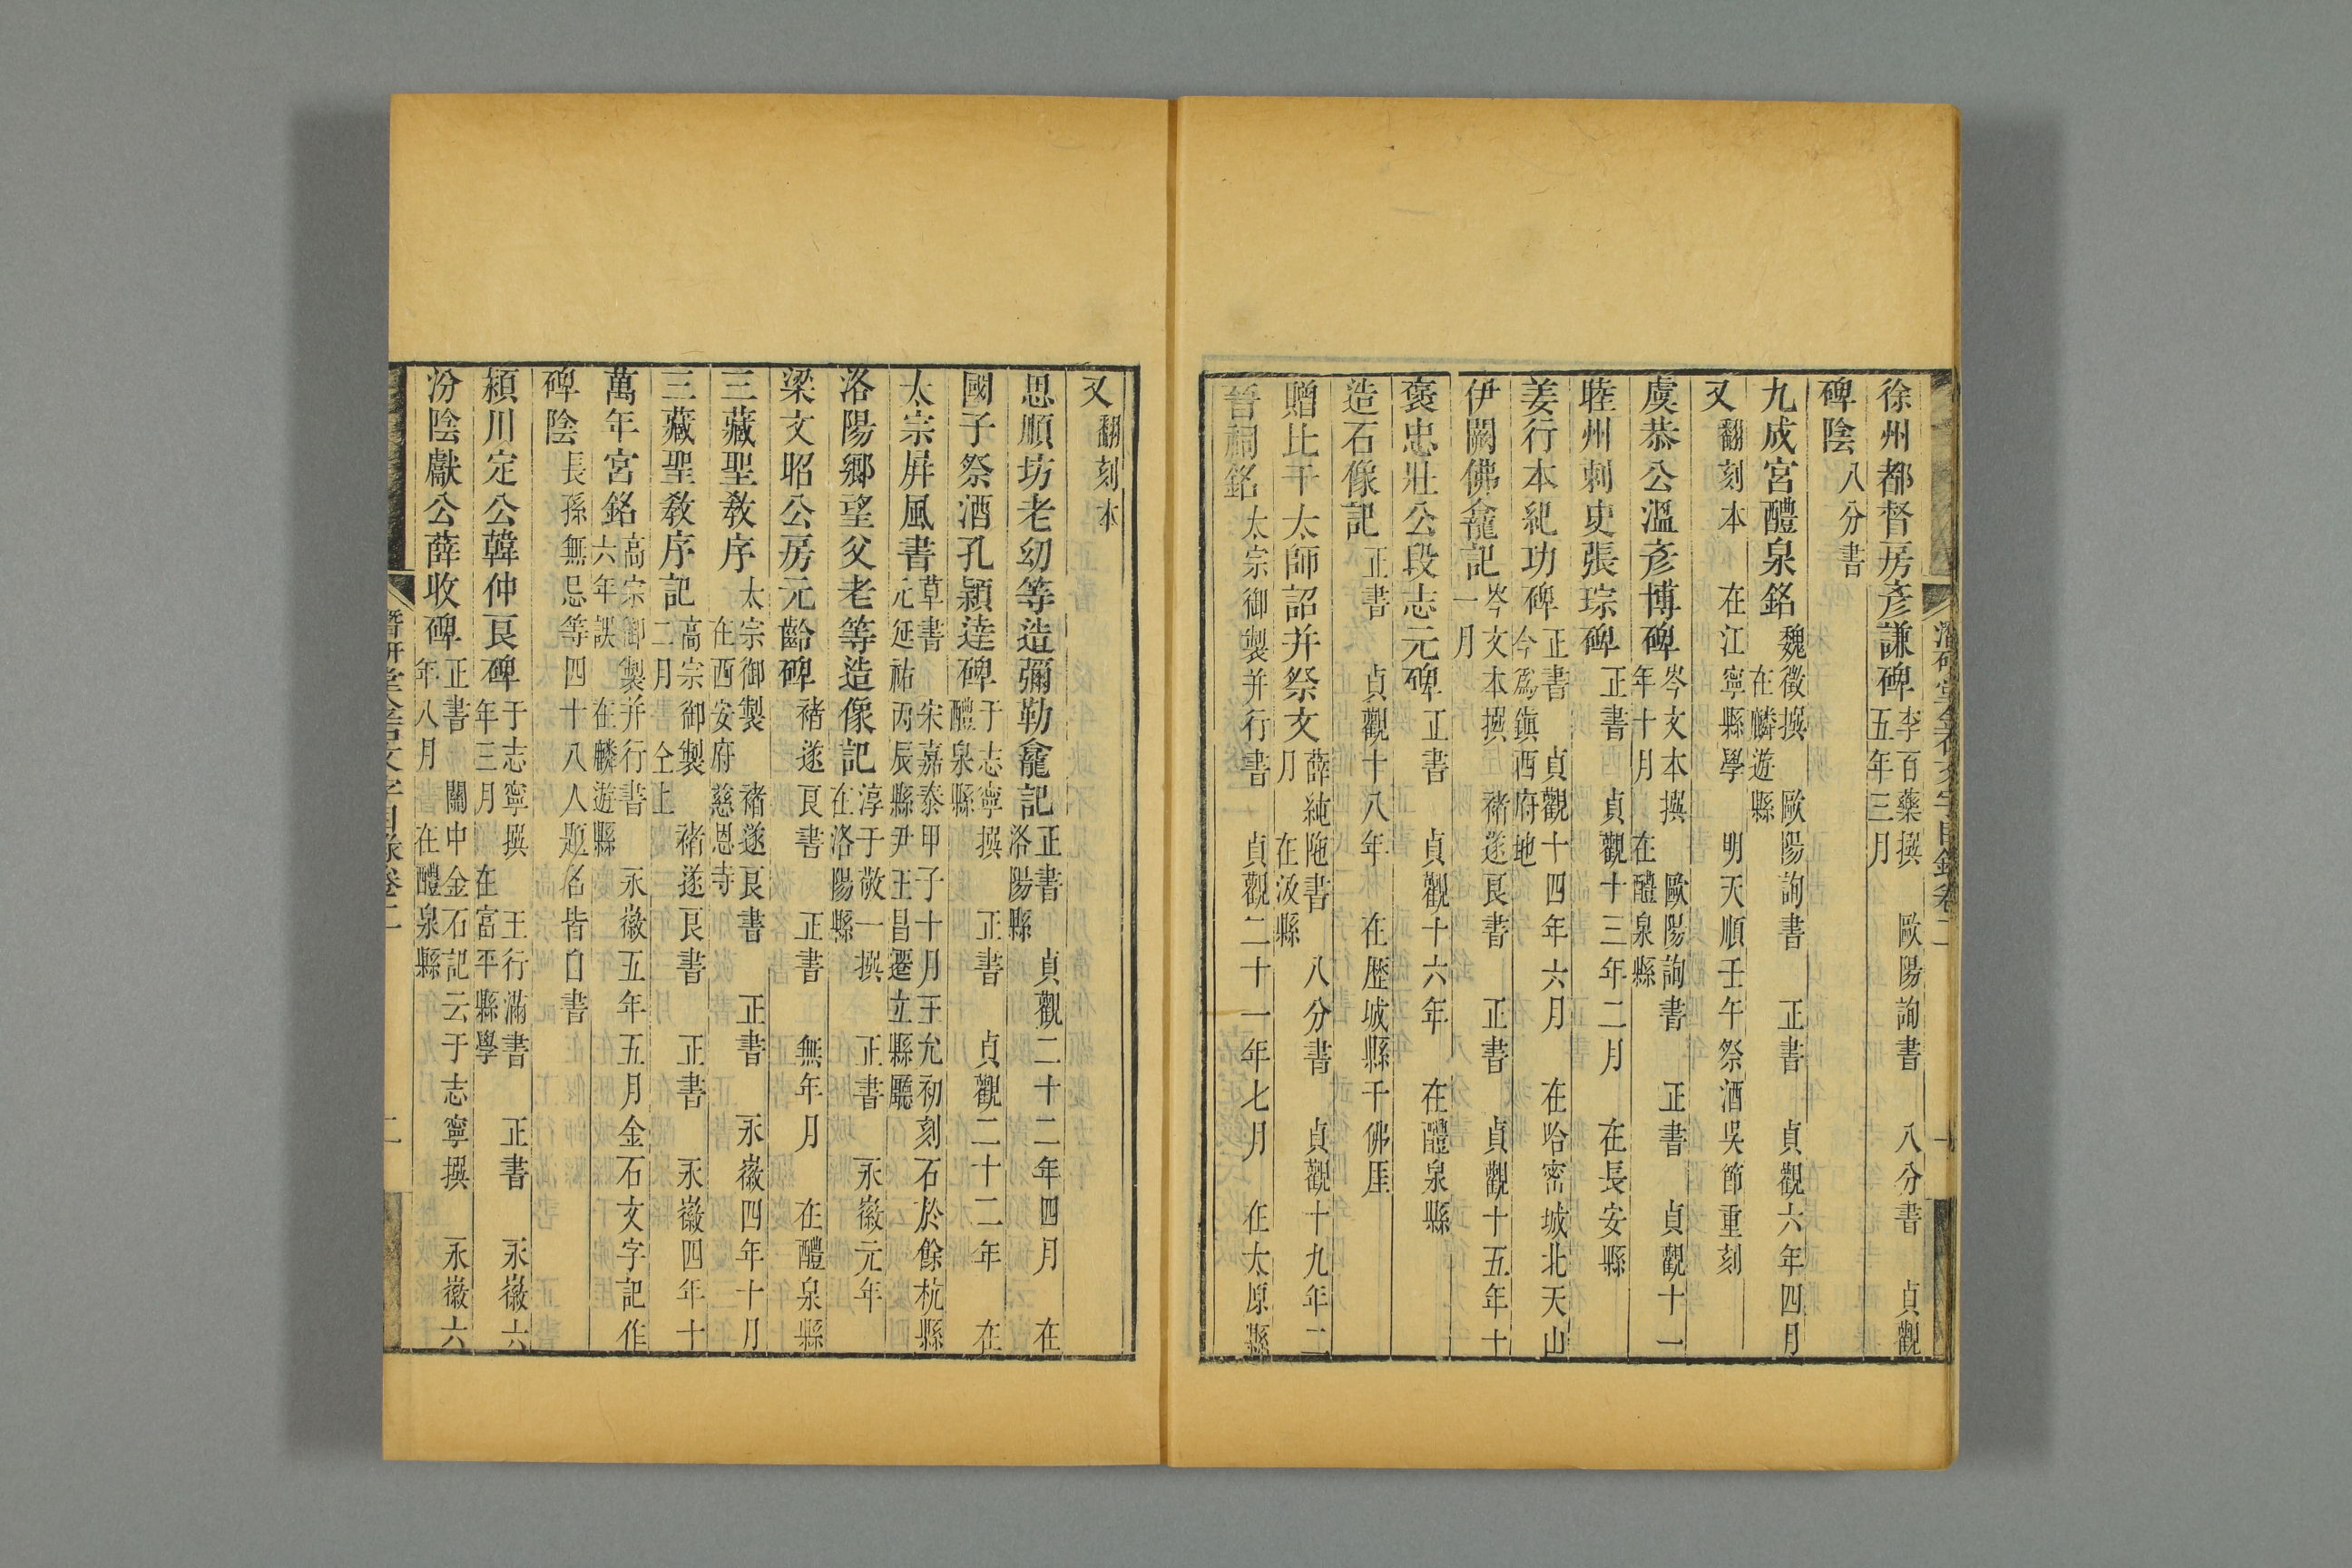 徐州都督房彥謙碑 李百藥撨 歐陽詢書 八分書 貞觀五年三月
碑陰 八分書
九成宮醴泉銘 魏徵撰 歐陽詢書 正書 貞觀六年四月在麟遊縣
又 翻刻本 在江寧縣學 明天順壬午祭酒吳節重刻
虞恭公溫彥博碑 岑文本撰 歐陽詢書 正書 貞觀十一年十月 在醴泉縣
睦州刺史張琮碑 正書 貞觀十三年二月 在長安縣
姜行本紀功碑 正書 貞觀十四年六月 在哈密城北天山今爲鎭西府地
伊闕佛龕記 岑文本撰 褚遂良書 正書 貞觀十五年十一月
褒忠壯公段志元碑 正書 貞觀十六年 在醴泉縣
造石像記 正書 貞觀十八年 在歷城縣千佛厓
贈比干太師詔并祭文 薛純陁書 八分書 貞觀十九年二月 在汲縣
晉祠銘 太宗御製并行書 貞觀二十一年七月 在太原縣
潛研堂金石文字目錄卷二
又 翻刻本
思順坊老幼等造彌勒龕記 正書 貞觀二十二年四月 在洛陽縣
國子祭酒孔穎達碑 于志寧撰 正書 貞觀二十二年 在醴泉縣
太宗屏風書 草書 宋嘉泰甲子十月王允初刻石於餘杭縣元延祐丙辰縣尹王昌遷立縣廳
洛陽鄉望父老等造像記 淳于敬一撰 正書 永徽元年在洛陽縣
梁文昭公房元齡碑 褚遂良書 正書 無年月 在醴泉縣
三藏聖教序 太宗御製 褚遂良書 正書 永徽四年十月在西安府慈恩寺
三藏聖教序記 高宗御製 褚遂良書 正書 永徽四年十二月 仝上
萬年宮銘 高宗御製并行書 永徽五年五月金石文字記作六年誤 在麟遊縣
碑陰 長孫無忌等四十八人題名皆自書
潁川定公韓仲良碑 于志寧撰 王行滿書 正書 永徽六年三月 在富平縣學
汾陰獻公薛收碑 正書 關中金石記云于志寧撰 永徽六年八月 在醴泉縣
潛研堂金石文字目錄卷二 二